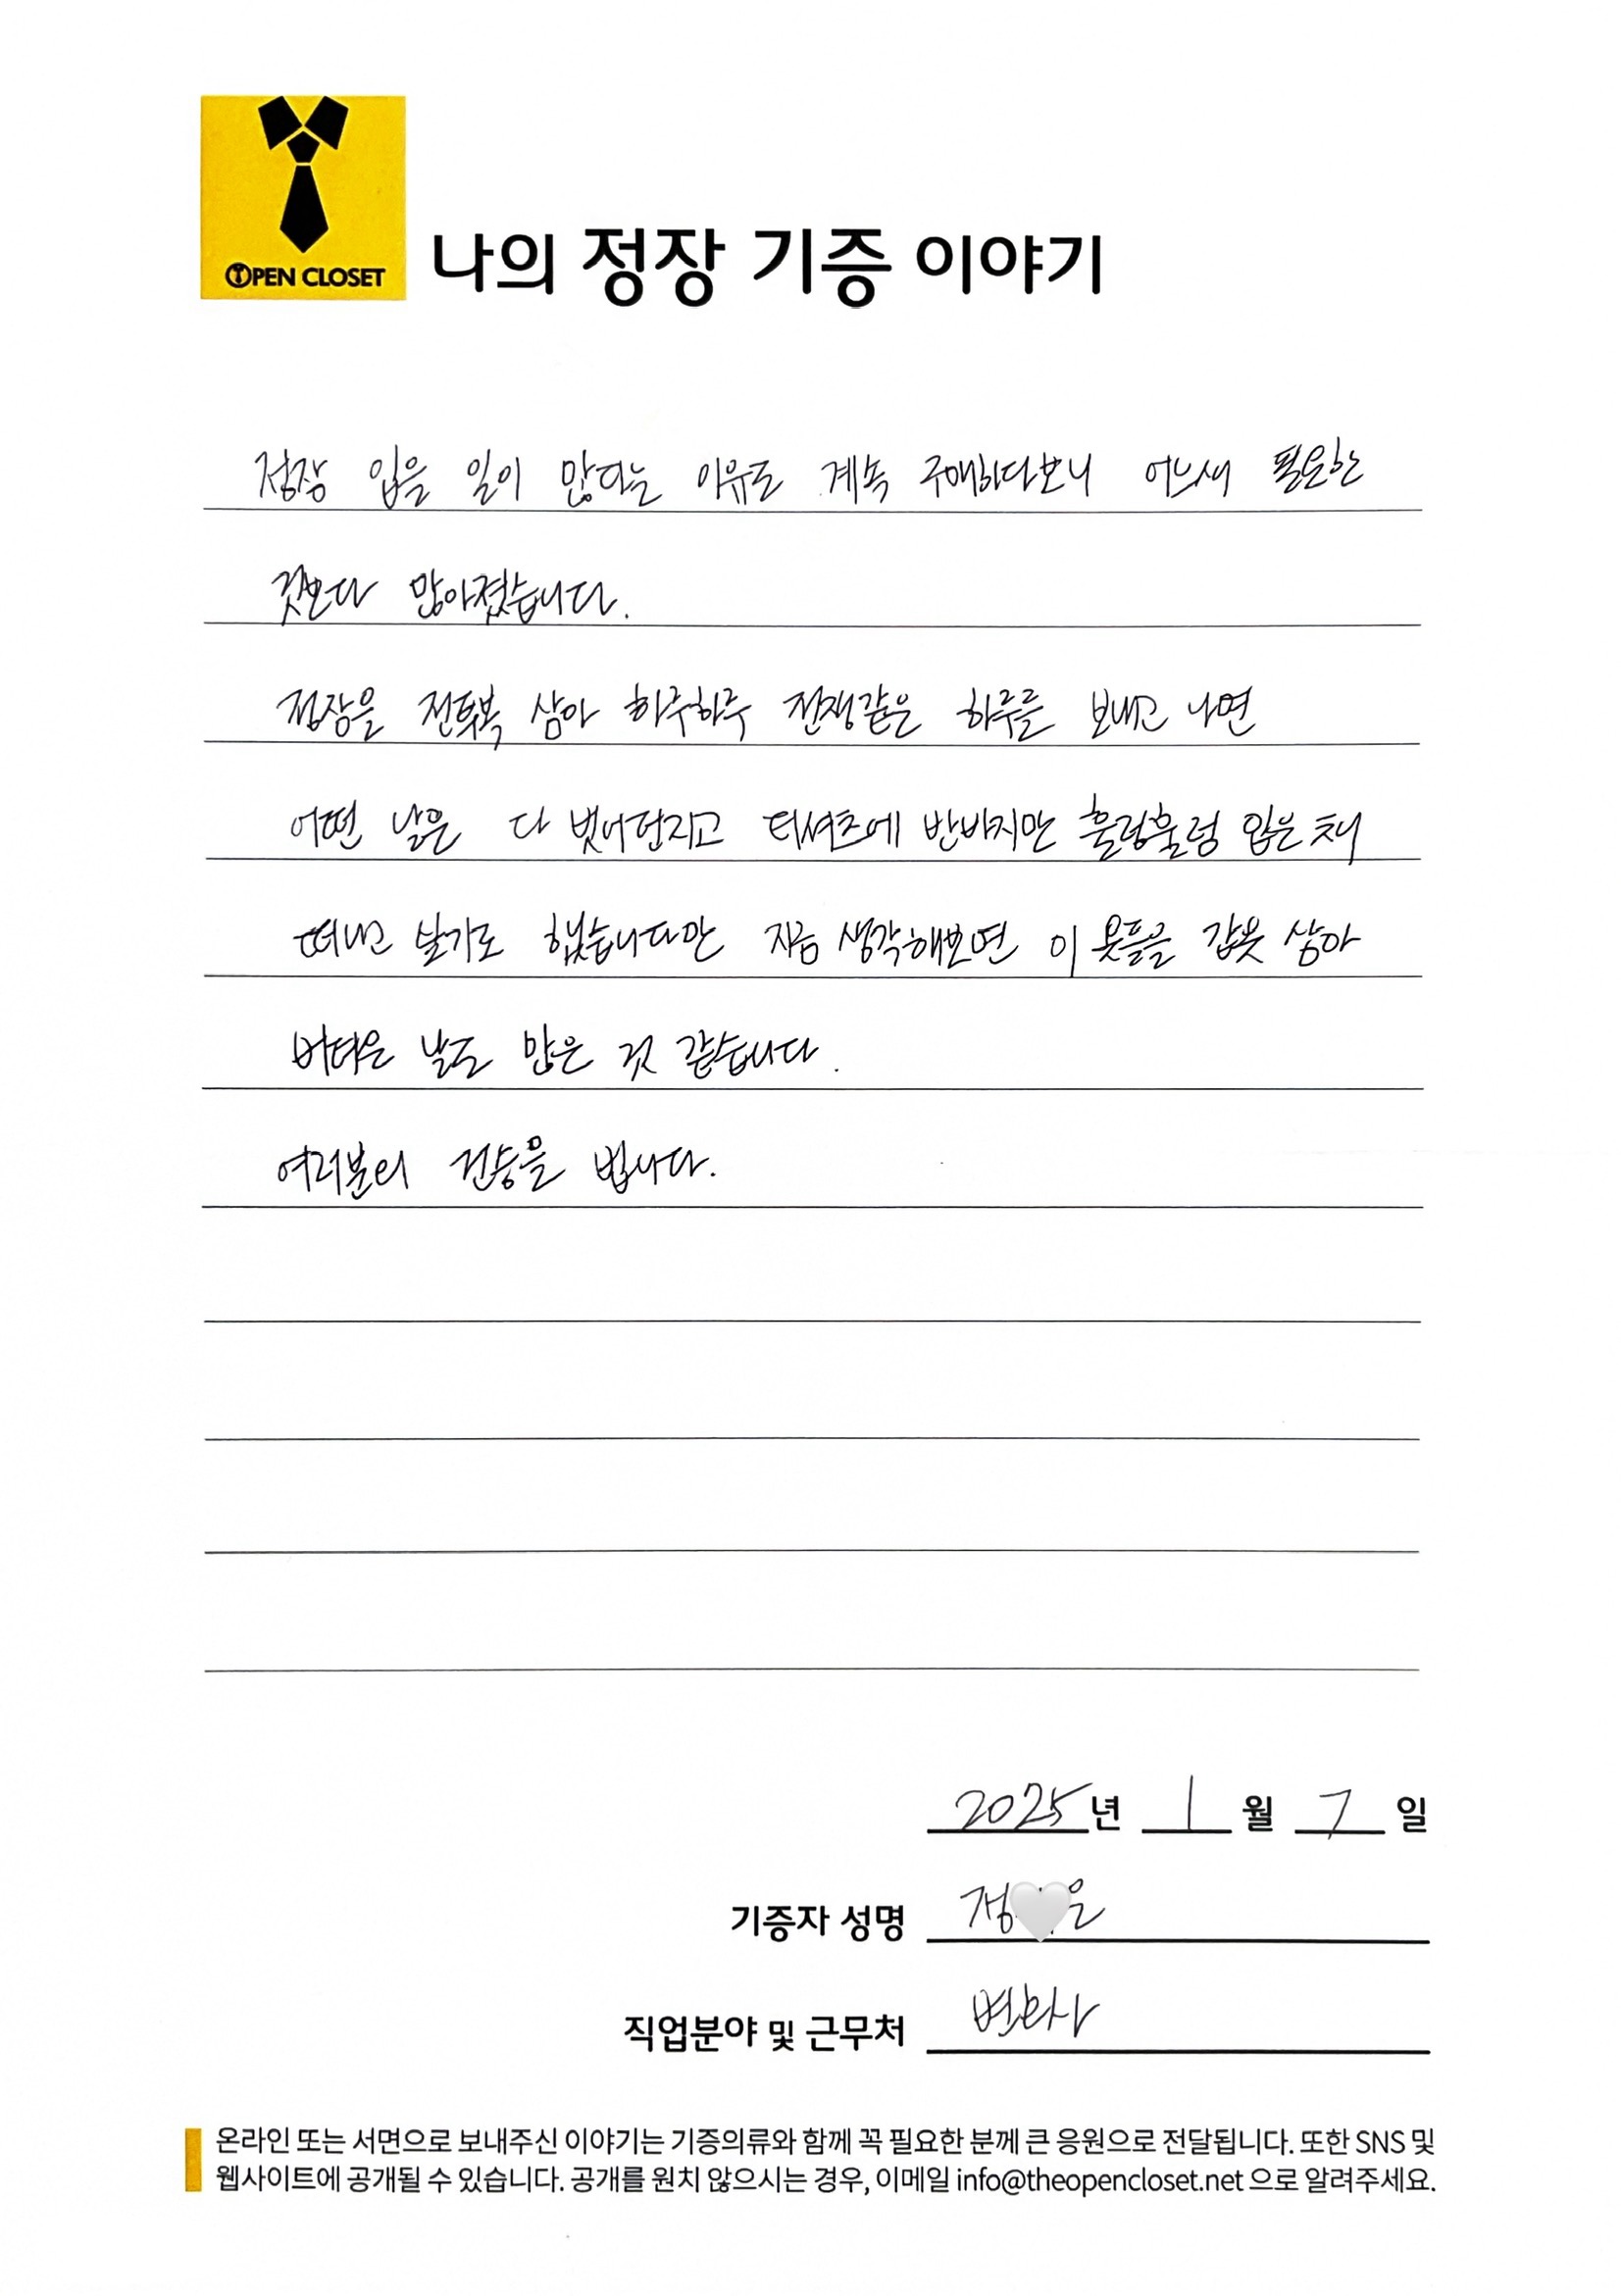 OPEN CLOSET
나의 정장 기증 이야기
정장 입을 일이 많다는 이유로 계속 구매하다보니 어느새 필요한
것보다 많아졌습니다.
정장을 전투복 삼아 하루하루 전쟁같은 하루를 보내고 나면
어떤 날은 다 벗어던지고 티셔츠에 반바지만 훌렁훌렁 입은 채
떠나고 싶기도 했습니다만 지금 생각해보면 이 옷들을 갑옷 삼아
버텨온 날도 많은 것 같습니다.
여러분의 건승을 빕니다.
2025년 1월 7일
기증자 성명 정 은
직업분야 및 근무처 변호사
온라인 또는 서면으로 보내주신 이야기는 기증의류와 함께 꼭 필요한 분께 큰 응원으로 전달됩니다. 또한 SNS 및
웹사이트에 공개될 수 있습니다. 공개를 원치 않으시는 경우, 이메일 info@theopencloset.net 으로 알려주세요.